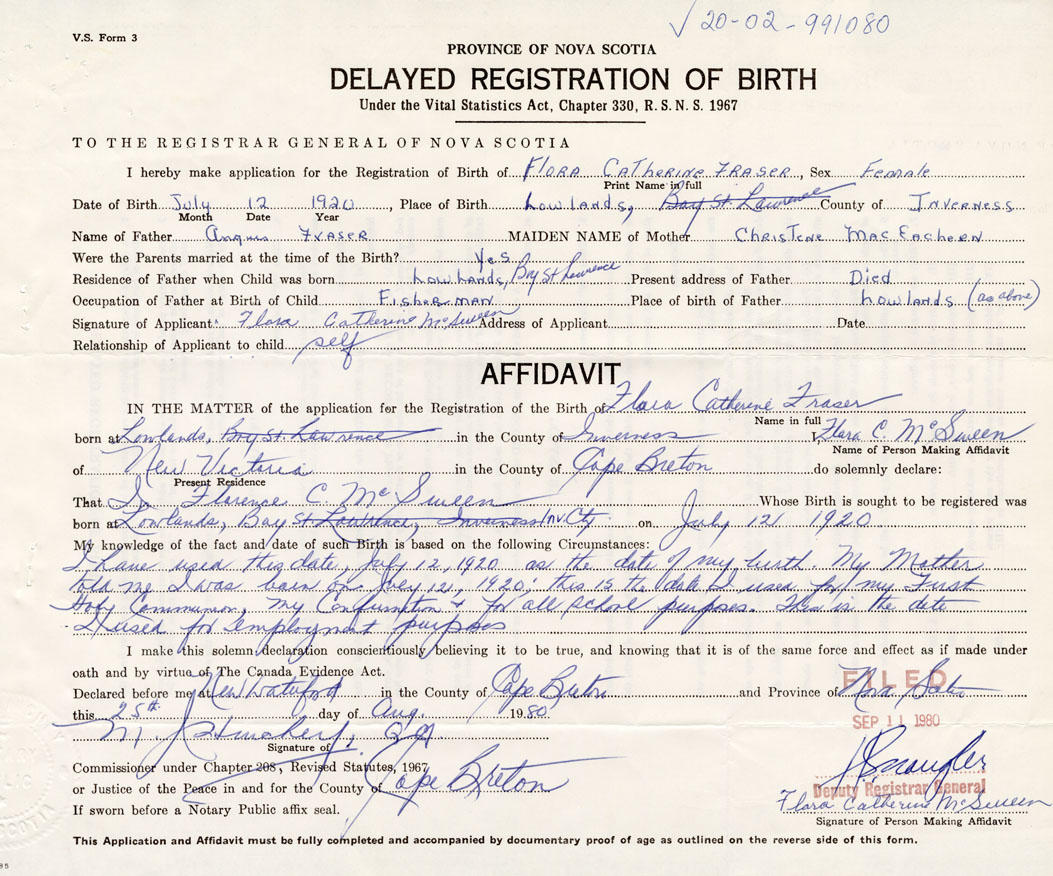 √ 20-02-991080
V.S. Form 3
PROVINCE OF NOVA SCOTIA
DELAYED REGISTRATION OF BIRTH
Under the Vital Statistics Act, Chapter 330, R. S. N. S. 1967
TO THE REGISTRAR GENERAL OF NOVA SCOTIA
I hereby make application for the Registration of Birth of Flora Catherine Fraser, Sex Female
Print Name in full
Date of Birth July 12 1920, Place of Birth Lowlands, Bay St. Lawrence County of Inverness
Month Date Year
Name of Father Angus Fraser MAIDEN NAME of Mother Christene MacEachern
Were the Parents married at the time of the Birth? Yes
Residence of Father when Child was born Lowlands, Bay St Lawrence Present address of Father Died
Occupation of Father at Birth of Child Fisherman Place of birth of Father Lowlands (as above)
Signature of Applicant Flora Catherine McSween Address of Applicant Date
Relationship of Applicant to child self
AFFIDAVIT
IN THE MATTER of the application for the Registration of the Birth of Flora Catherine Fraser
Name in full
born at Lowlands, Bay St. Lawrence in the County of Inverness I, Flora C. McSween
Name of Person Making Affidavit
of New Victoria in the County of Cape Breton do solemnly declare:
Present Residence
That I Florence C. McSween Whose Birth is sought to be registered was
born at Lowlands, Bay St Lawrence, Inverness Inv. Cty. on July 12 1920
My knowledge of the fact and date of such Birth is based on the following Circumstances:
I have used this date, July 12, 1920 as the date of my birth. My Mother
told me I was born on July 12, 1920; this is the date I used for my First
Holy Communion, my Confirmation & for all school purposes. This is the date
I used for employment purposes
I make this solemn declaration conscientiously believing it to be true, and knowing that it is of the same force and effect as if made under
oath and by virtue of The Canada Evidence Act.
Declared before me at New Waterford in the County of Cape Breton and Province of Nova Scotia
FILED
this 25th day of Aug. 1980
SEP 11 1980
Signature of
Commissioner under Chapter 208, Revised Statutes, 1967
or Justice of the Peace in and for the County of Cape Breton
Deputy Registrar General
If sworn before a Notary Public affix seal.
Flora Catherine McSween
Signature of Person Making Affidavit
This Application and Affidavit must be fully completed and accompanied by documentary proof of age as outlined on the reverse side of this form.